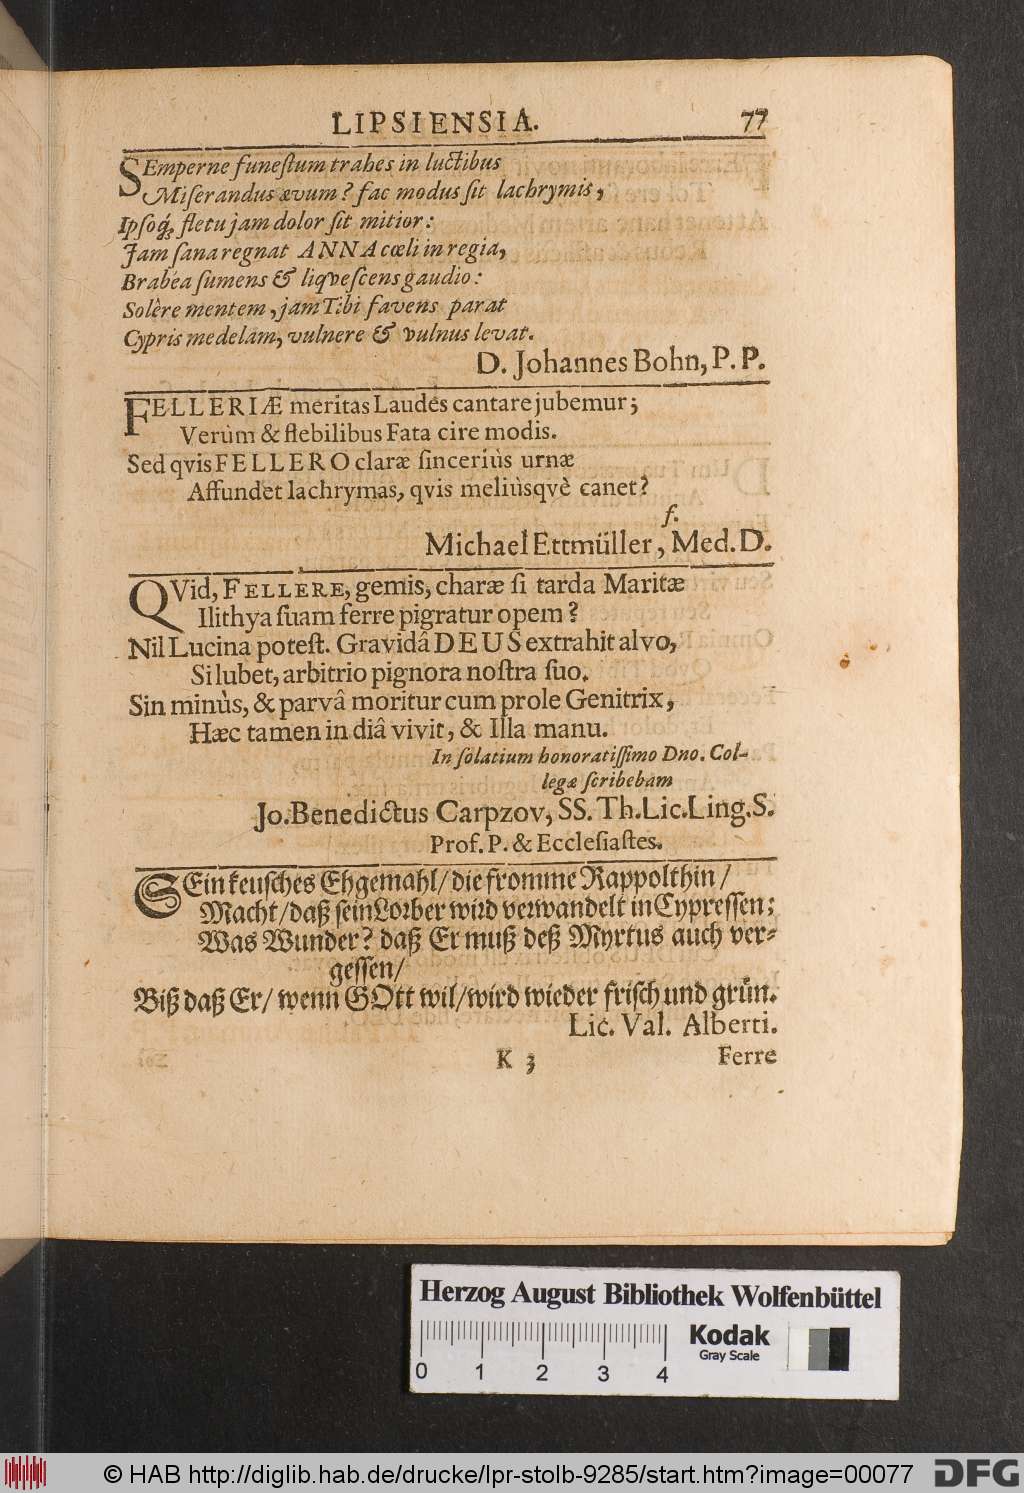 LIPSIENSIA. 77
SEmperne funeſtum trahes in luctibus
Miſerandus ævum? fac modus ſit lachrymis,
Ipſoq́; fletu jam dolor ſit mitior:
Jam ſana regnat ANNA cœli in regia,
Brabéa ſumens & liqveſcens gaudio:
Solêre mentem, jam Tibi favens parat
Cypris medelam, vulnere & vulnus levat.
D. Johannes Bohn, P. P.
FELLERIÆ meritas Laudes cantare jubemur;
Verùm & flebilibus Fata cire modis.
Sed qvis FELLERO claræ ſinceriùs urnæ
Affundet lachrymas, qvis meliùsqvè canet?
f.
Michael Ettmüller, Med. D.
QVid, FELLERE, gemis, charæ ſi tarda Maritæ
Ilithya ſuam ferre pigratur opem?
Nil Lucina poteſt. Gravidâ DEUS extrahit alvo,
Si lubet, arbitrio pignora noſtra ſuo.
Sin minùs, & parvâ moritur cum prole Genitrix,
Hæc tamen in diâ vivit, & Illa manu.
In ſolatium honoratiſſimo Dno. Col-
legæ ſcribebam
Jo. Benedictus Carpzov, SS. Th. Lic. Ling. S.
Prof. P. & Eccleſiaſtes.
SEin keuſches Ehgemahl/ die fromme Rappolthin/
Macht/ daß ſein Lorber wird verwandelt in Cypreſſen;
Was Wunder? daß Er muß deß Myrtus auch ver-
geſſen/
Biß daß Er/ wenn GOtt wil/ wird wieder friſch und grün.
Lic. Val. Alberti.
K 3 Ferre
Herzog August Bibliothek Wolfenbüttel
Kodak
Gray Scale
0 1 2 3 4
© HAB http://diglib.hab.de/drucke/lpr-stolb-9285/start.htm?image=00077 DFG